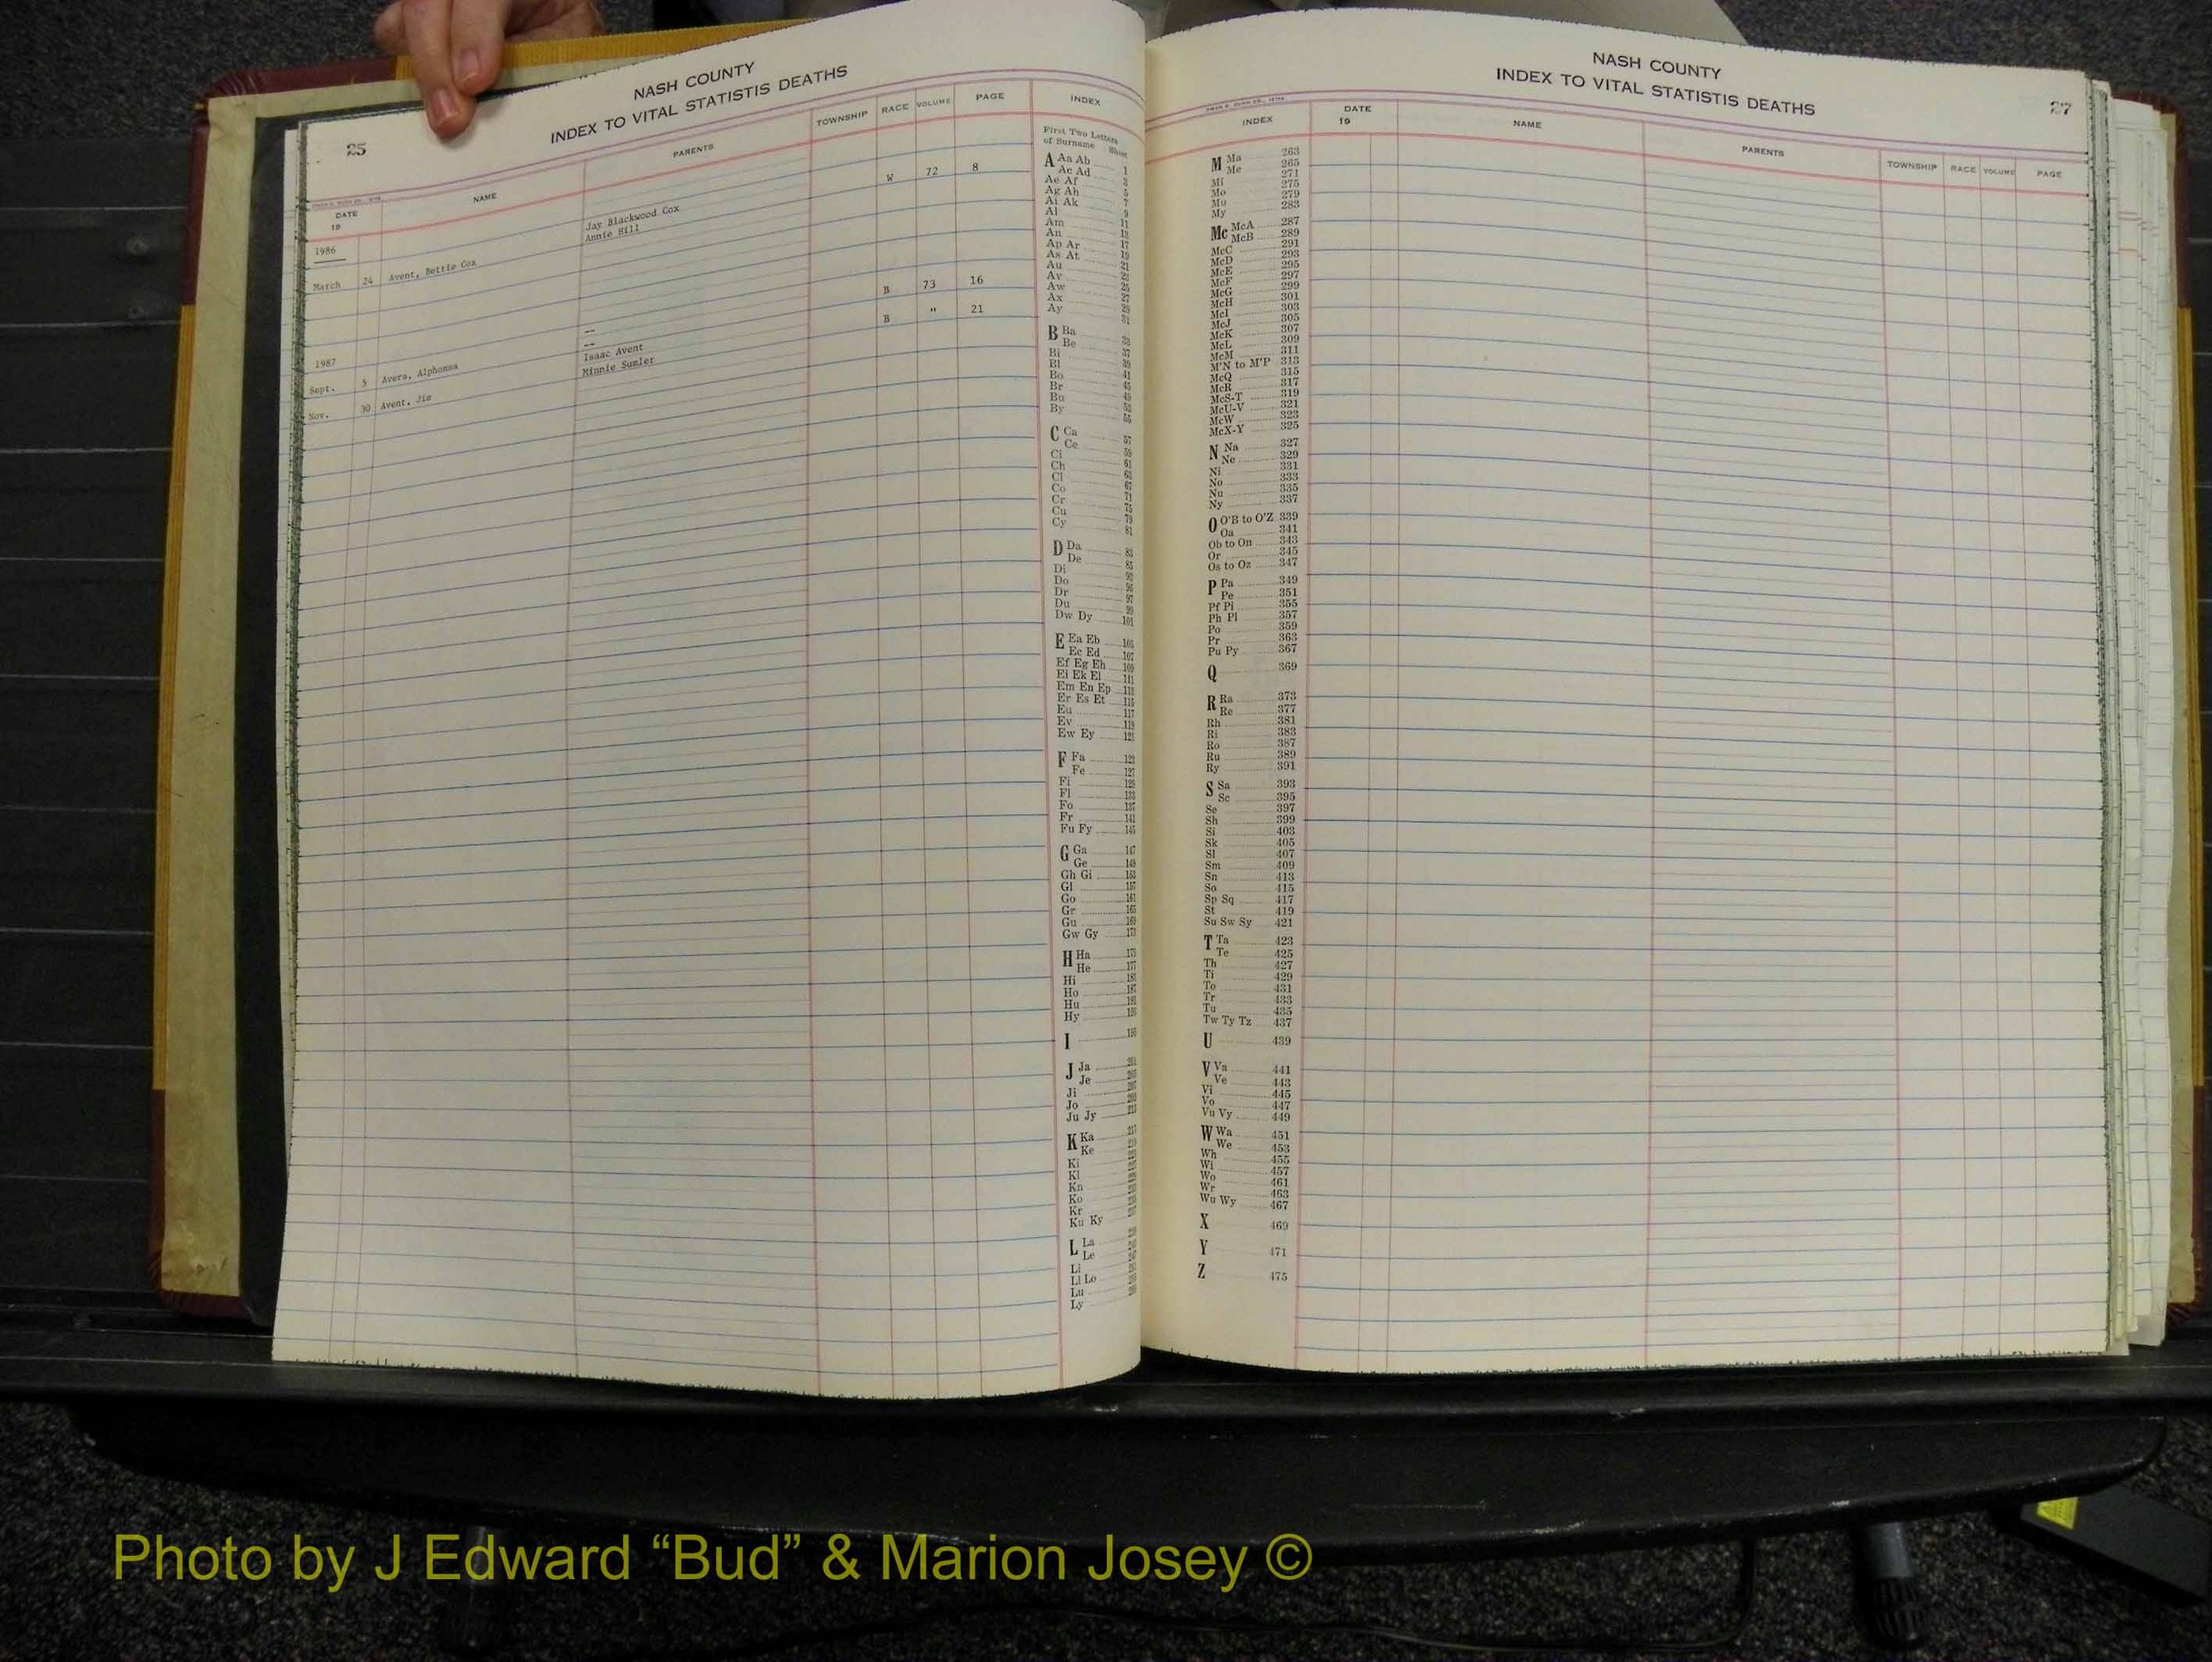 25
NASH COUNTY
INDEX TO VITAL STATISTIS DEATHS
DATE
19
NAME
PARENTS
TOWNSHIP
RACE
VOLUME
PAGE
1986
March 24 Avent, Bettie Cox Jay Blackwood Cox W 72 8
Annie Hill
1987
Sept. 5 Avera, Alphonsa -- B 73 16
--
Nov. 30 Avent, Jim Isaac Avent B " 21
Minnie Sumler
INDEX
First Two Letters
of Surname Sheet
A Aa Ab 1
Ac Ad 3
Ae Af 5
Ag Ah 7
Ai Ak 9
Al 11
Am 13
An
Ap Ar 17
As At 19
Au 21
Av
Aw 25
Ax 27
Ay 29
31
B Ba 33
Be 37
Bi 39
Bl 41
Bo 45
Br 49
Bu 53
By 55
C Ca 57
Ce 59
Ci 61
Ch 63
Cl 67
Co 71
Cr 75
Cu 79
Cy 81
D Da 83
De 85
Di
Do
Dr 97
Du 99
Dw Dy 101
E Ea Eb 105
Ec Ed 107
Ef Eg Eh 109
Ei Ek El 111
Em En Ep 113
Er Es Et 115
Eu 117
Ev 119
Ew Ey 121
F Fa 123
Fe 127
Fi
Fl 133
Fo 137
Fr 141
Fu Fy 145
G Ga 147
Ge 149
Gh Gi 153
Gl 157
Go 161
Gr 165
Gu 169
Gw Gy
H Ha
He 177
Hi
Ho
Hu
Hy
I
J Ja
Je
Ji
Jo
Ju Jy
K Ka
Ke
Ki
Kl
Kn
Ko
Kr
Ku Ky
L La
Le
Li
Ll Lo
Lu
Ly
NASH COUNTY
INDEX TO VITAL STATISTIS DEATHS
27
INDEX
DATE
19
NAME
PARENTS
TOWNSHIP
RACE
VOLUME
PAGE
M Ma 263
Me 265
271
Mi 275
Mo 279
Mu 283
My
Mc McA 287
McB 289
McC 291
McD 293
McE 295
McF 297
McG 299
McH 301
McI 303
McJ 305
McK 307
McL 309
McM 311
M'N to M'P 313
McQ 315
McR 317
McS-T 319
McU-V 321
McW 323
McX-Y 325
N Na 327
Ne 329
Ni 331
No 333
Nu 335
Ny 337
O O'B to O'Z 339
Oa 341
Ob to On 343
Or 345
Os to Oz 347
P Pa 349
Pe 351
Pf Pi 355
Ph Pl 357
Po 359
Pr 363
Pu Py 367
Q 369
R Ra 373
Re 377
Rh 381
Ri 383
Ro 387
Ru 389
Ry 391
S Sa 393
Sc 395
Se 397
Sh 399
Si 403
Sk 405
Sl 407
Sm 409
Sn 413
So 415
Sp Sq 417
St 419
Su Sw Sy 421
T Ta 423
Te 425
Th 427
Ti 429
To 431
Tr 433
Tu 435
Tw Ty Tz 437
U 439
V Va 441
Ve 443
Vi 445
Vo 447
Vu Vy 449
W Wa 451
We 453
Wh 455
Wi 457
Wo 461
Wr 463
Wu Wy 467
X 469
Y 471
Z 475
Photo by J Edward “Bud” & Marion Josey ©